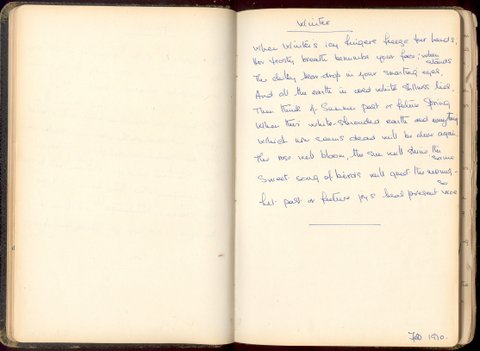 Winter
When Winter's icy fingers freeze your hands,
Her frosty breath benumbs your face; when
stands
The chilly tear-drop in your smarting eyes,
And all the earth in dead white stillness lies,
Then think of Summer past or future Spring
When this white-shrouded earth and everything
Which now seems dead will be alive again.
The rose will bloom, the sun will shine the
same
Sweet song of birds will greet the morning.
So
let past or future joys heal present